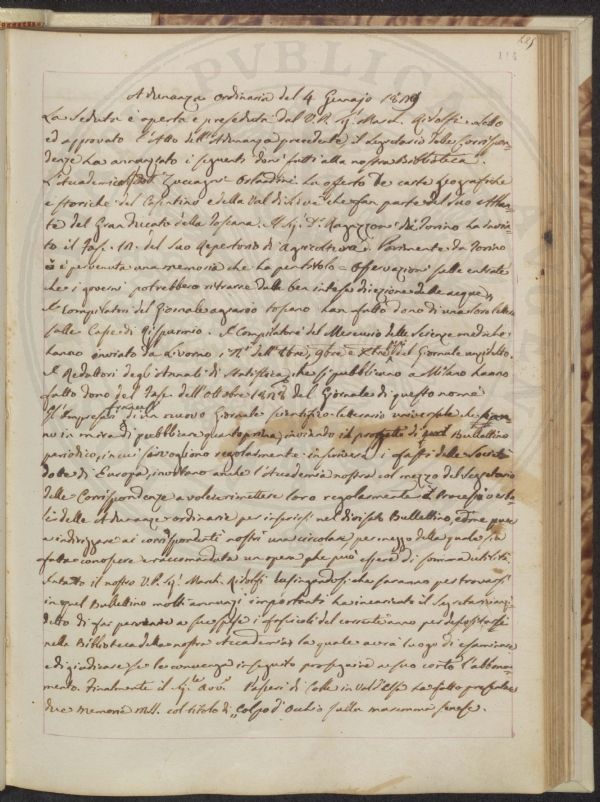 PVBLICA
Adunanza ordinaria del 4 Gennajo 1829
La Seduta è aperta e preseduta dal V. P. Sig. March. Ridolfi. Letto
ed approvato l'Atto dell'Adunanza precedente il Segretario delle Corrispon-
denze ha annunziato i seguenti doni fatti alla nostra Biblioteca.
L'Accademico Zuccagni Orlandini ha offerto le carte geografiche
e storiche del Casentino e della Val di Sieve che fan parte del suo Atlan-
te del Gran Ducato della Toscana. Il Sig. D. Ragazzoni di Torino ha invia-
to il Fasc. del suo Repertorio di Agricoltura. Parimente da Torino
è pervenuta una memoria che ha per titolo = Osservazioni sulle entrate
che i governi potrebbero ritrarre dalla ben intesa direzione delle acque.
I Compilatori del Giornale agrario toscano han fatto dono di una loro lettera
sulle Casse di Risparmio. I Compilatori del Mercurio delle Scienze mediche
hanno inviato da Livorno i N. dell' 8bre, 9bre e Xbre del Giornale anzidetto.
I Redattori degli Annali di Statistica, che si pubblicano a Milano hanno
fatto dono del Fasc. dell'Ottobre 1828 del Giornale di questo nome
Gl'Impresari di un nuovo Giornale scientifico-letterario universale che
no in mira di pubblicare quanto prima, inviando il progetto di quel Bullettino
periodico, in cui si vogliono regolarmente inserire i fasti delle Società
dotte di Europa, invitano anche l'Accademia nostra col mezzo del Segretario
delle Corrispondenze a voler rimettere loro regolarmente i processi verba-
li delle Adunanze ordinarie per inserirsi nel divisato Bullettino, come pure
a indirizzare ai corrispondenti nostri una circolare per mezzo della quale sia
fatta conoscere e raccomandata un'opera che può essere di somma utilità.
il nostro V. P. Sig. March. Ridolfi lusingandosi che saranno per trovarsi
in quel Bullettino molti annunzi importanti ha incaricato il Segretario anzi-
detto di far pervenire a sue spese i fascicoli del corrente anno per depositarsi
nella Biblioteca della nostra Accademia la quale avrà luogo di esaminare
e di giudicare se le convenga in seguito proseguire a suo conto l'abbona-
mento. Finalmente il Sig. Avv. Passeri di Colle in Val d'Elsa ha fatto presentare
due memorie mss. col titolo di „Colpo d'Occhio sulla maremma senese.